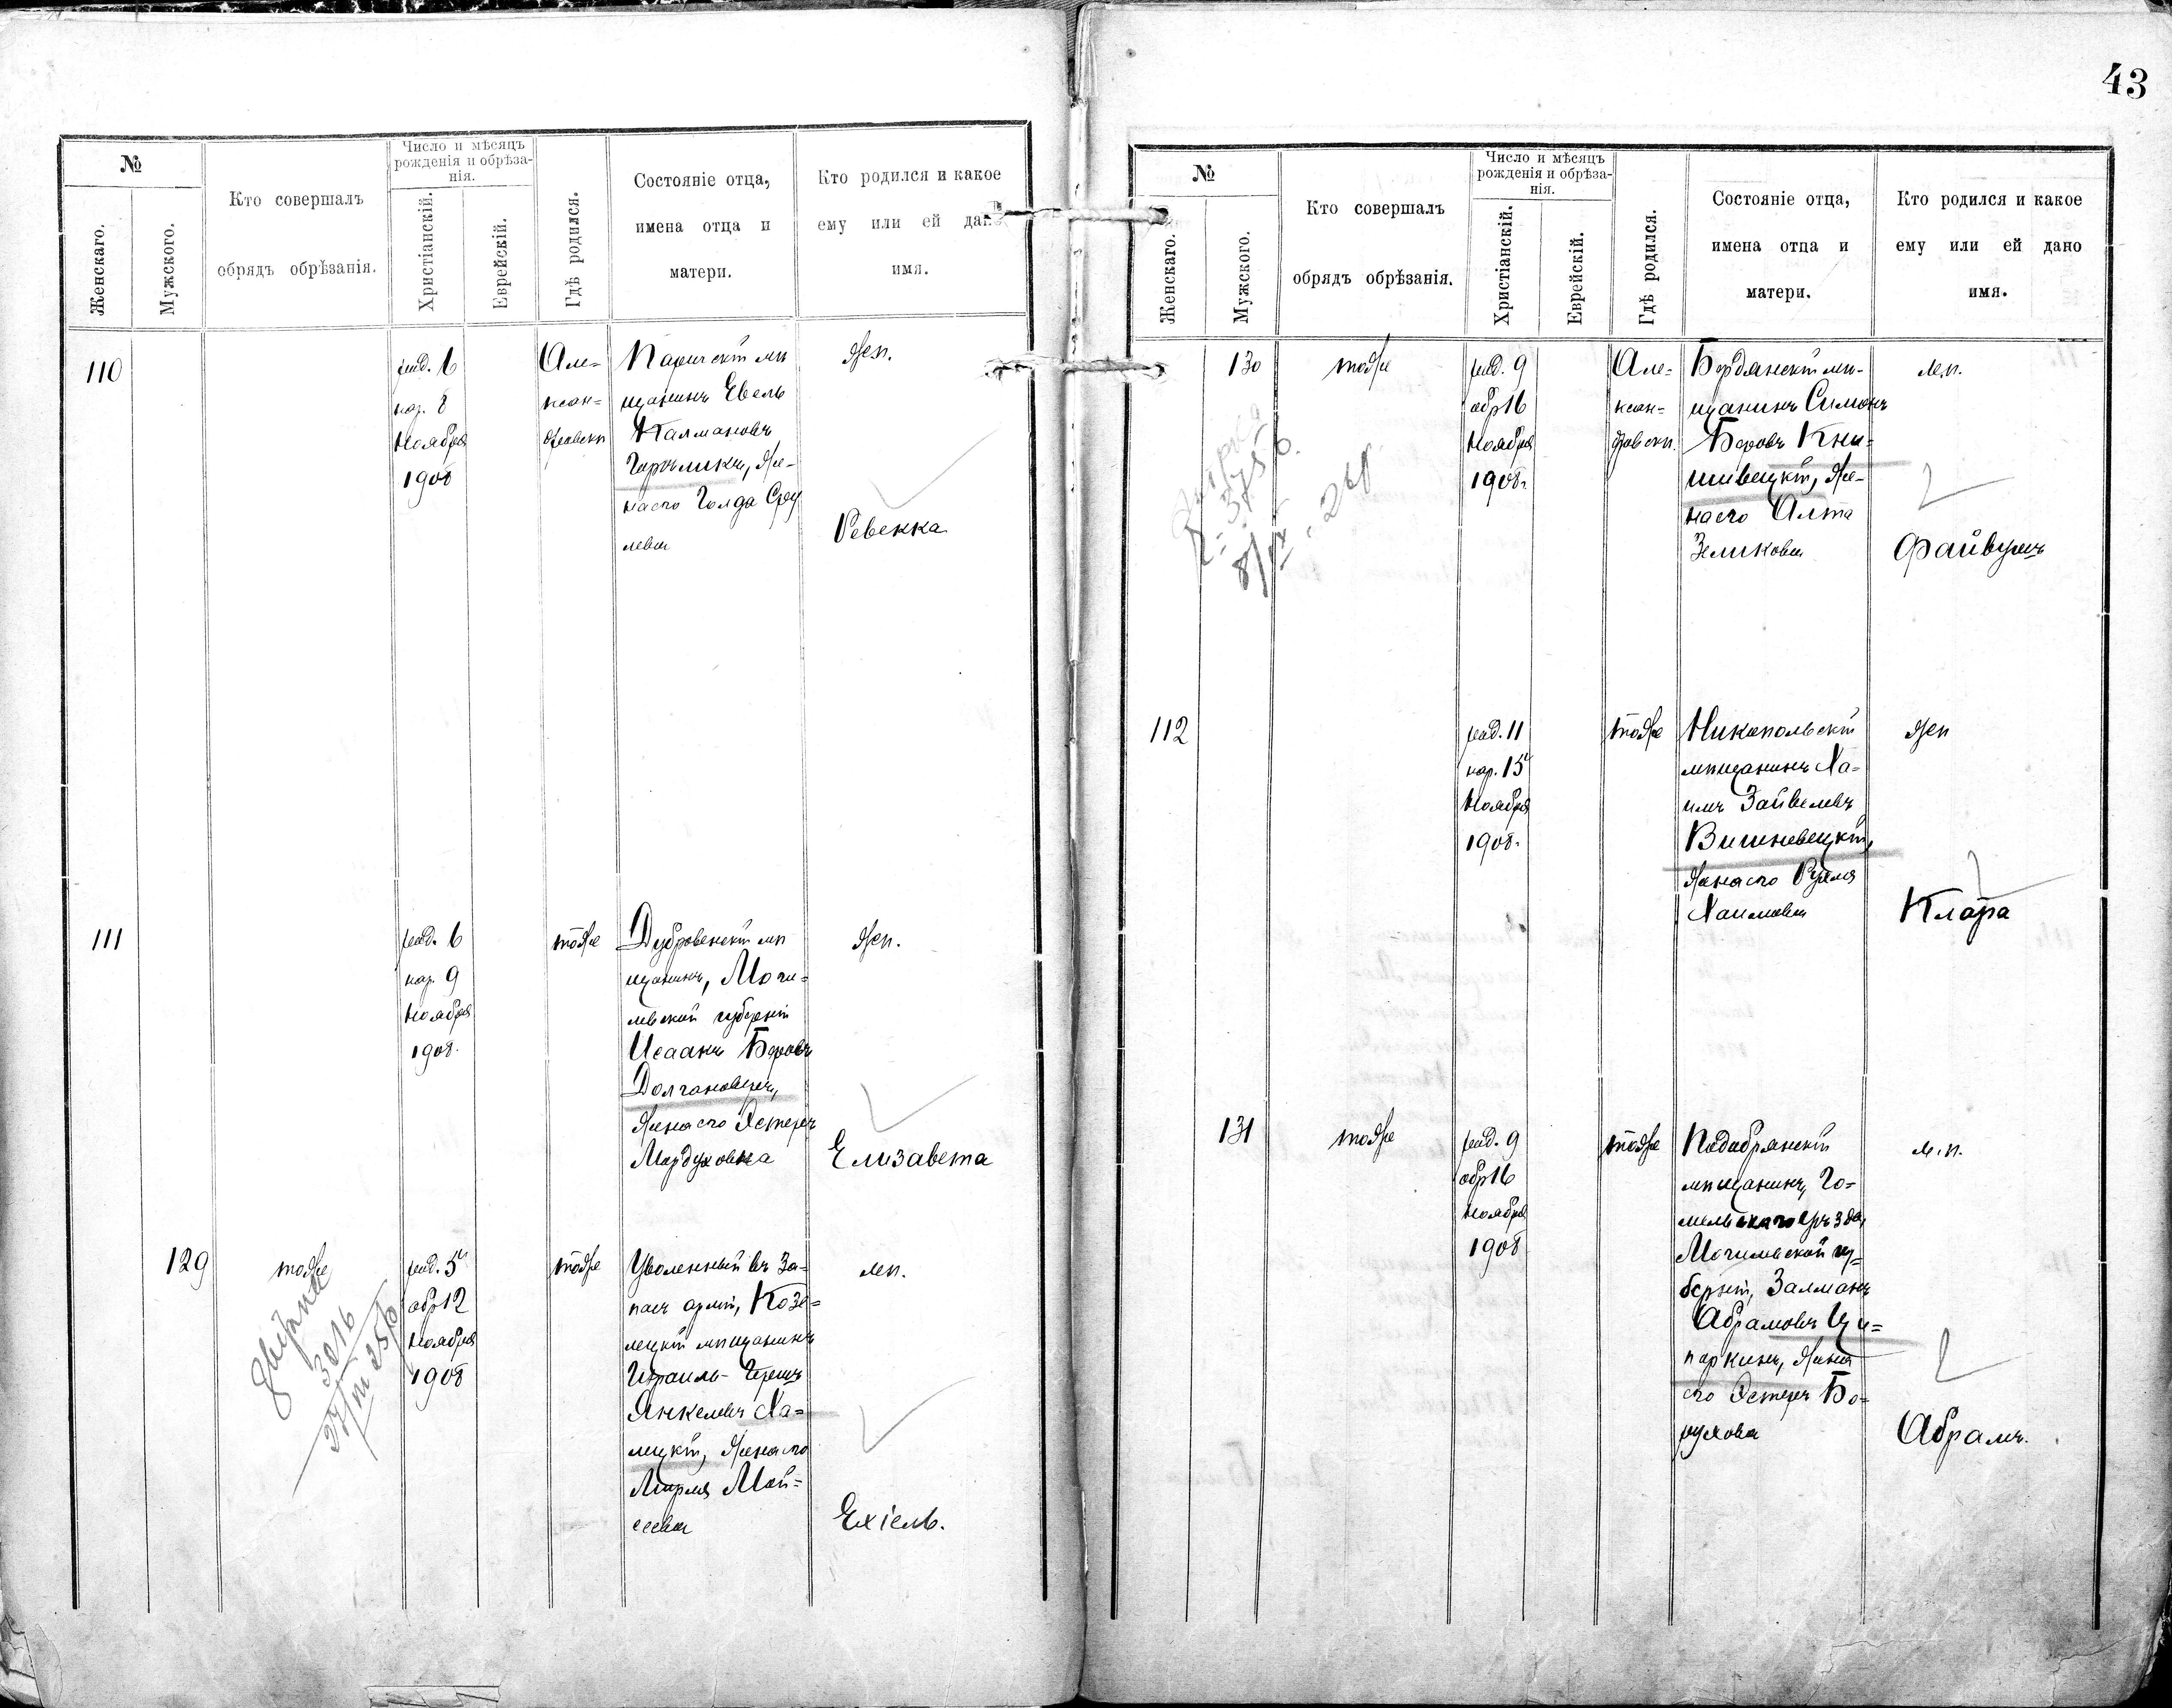 43
№
Женскаго.
Мужского.
Кто совершалъ
обрядъ обрѣзанія.
Число и мѣсяцъ
рожденія и обрѣза-
нія.
Христіанскій.
Еврейскій.
Гдѣ родился.
Состояніе отца,
имена отца и
матери.
Кто родился и какое
ему или ей дано
имя.
110
род. 6
нар. 8
Ноября
1908
Але=
ксан=
дровскъ
мѣ
щанинъ Евель
Калмановъ
Горѣликъ, Же-
на его Голда
Жен.
Ревекка
111
род. 6
нар. 9
Ноября
1908.
тоже
Дубровенскій мѣ
щанинъ, Моги=
левской губерніи
Исаакъ Беровъ
жена его Эстеръ
Мордуховна
Жен.
Елизавета
129
тоже
род. 5
обр 12
Ноября
1908
тоже
Уволенный въ За-
пасъ арміи, Козе=
лецкій мѣщанинъ
Израиль-Герцъ
Янкелевъ Ха=
жена его
Мирля Мой=
сеева
мп.
Ехіель.
3016
№
Женскаго.
Мужского.
Кто совершалъ
обрядъ обрѣзанія.
Число и мѣсяцъ
рожденія и обрѣза-
нія.
Христіанскій.
Еврейскій.
Гдѣ родился.
Состояніе отца,
имена отца и
матери.
Кто родился и какое
ему или ей дано
имя.
130
тоже
род. 9
обр 16
Ноября
1908.
Але-
ксан=
дровскъ.
Бердянскій мѣ-
щанинъ Симонъ
Беровъ Кни=
шивецкій, Же-
на его Алта
Зеликова
м.п.
Файвушъ
112
род. 11
нар. 15
Ноября
1908.
тоже
Никопольскій
мѣщанинъ Ха=
имъ Зайвелевъ
Вишневецкій,
Жена его Рухля
Хаимова
Жен
Клара
131
тоже
род. 9
обр 16
Ноября
1908
тоже
Подобрянскій
мѣщанинъ, Го=
мельскаго уѣзда,
Могилевской гу=
берніи, Залманъ
Абрамовъ Ци=
паркинъ, жена
его Эстеръ Бо=
рухова
м.п.
Абрамъ.